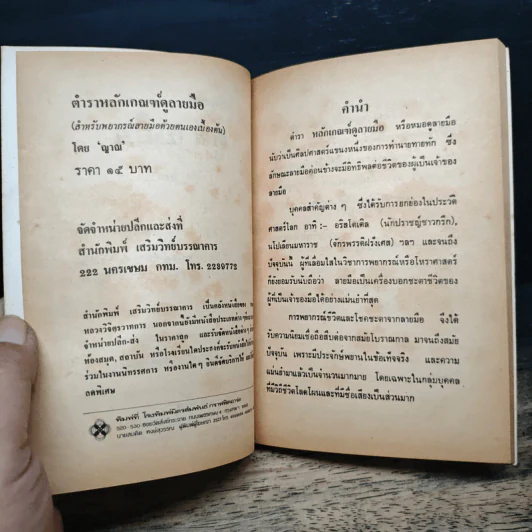 ตำราหลักเกณฑ์ดูลายมือ
(สำหรับพยากรณ์ลายมือด้วยตนเองเบื้องต้น)
โดย 'ญาณ'
ราคา ๑๕ บาท
จัดจำหน่ายปลีกและส่งที่
สำนักพิมพ์ เสริมวิทย์บรรณาคาร
222 นครเขษม กทม. โทร. 2239772
สำนักพิมพ์ เสริมวิทย์บรรณาคาร เป็นคลังหนังสือของ
หลวงวิจิตรวาทการ นอกจากนี้ยังมีหนังสือประเภทต่าง ๆ
จำหน่ายปลีก-ส่ง ในราคาถูก และรับจัดหนังสือเข้า
ห้องสมุด, สถาบัน หรือโรงเรียนใดประสงค์
ร่วมในงานนิทรรศการ หรืองานใดๆ ยินดีจัดบริการให้
ลดพิเศษ
พิมพ์ที่ โรงพิมพ์มิตรสัมพันธ์
คำนำ
ตำรา หลักเกณฑ์ดูลายมือ หรือหมอดูลายมือ
นับว่าเป็นศิลปศาสตร์แขนงหนึ่งของการทำนายทายทัก ซึ่ง
ลักษณะลายมือค่อนข้างจะมีอิทธิพลต่อชีวิตของผู้เป็นเจ้าของ
ลายมือ
บุคคลสำคัญต่าง ๆ ซึ่งได้รับการยกย่องในประวัติ
ศาสตร์โลก อาทิ :- อริสโตเติล (นักปราชญ์ชาวกรีก),
นโปเลียนมหาราช (จักรพรรดิฝรั่งเศส) ฯลฯ และจนถึง
ปัจจุบันนี้ ผู้ที่เลื่อมใสในวิชาการพยากรณ์หรือโหราศาสตร์
ก็ยังยอมรับนับถือว่า ลายมือเป็นเครื่องบอกชะตาชีวิตของ
ผู้ที่เป็นเจ้าของมือได้อย่างแม่นยำที่สุด
การพยากรณ์ชีวิตและโชคชะตาจากลายมือ จึงได้
รับความนิยมเชื่อถือสืบต่อจากสมัยโบราณกาล มาจนถึงสมัย
ปัจจุบัน เพราะมีประจักษ์พยานในข้อเท็จจริง และความ
แม่นยำมาแล้วเป็นจำนวนมากมาย โดยเฉพาะในกลุ่มบุคคล
ที่มีวิถีชีวิตโลดโผนและที่มีชื่อเสียงเป็นส่วนมาก